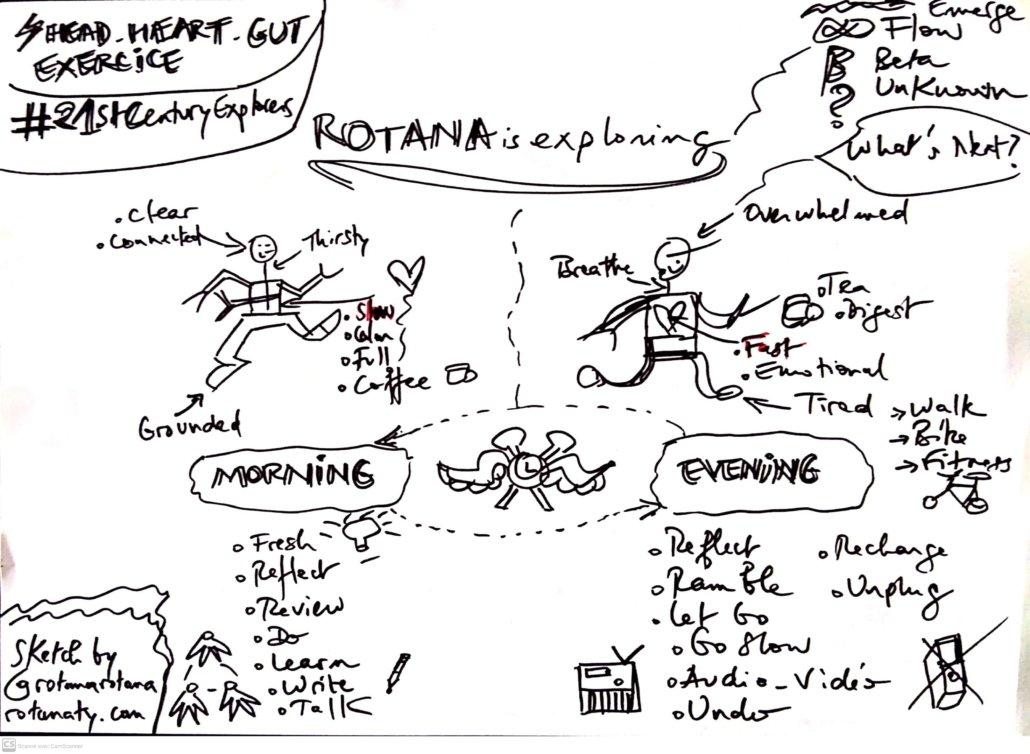 HEAD.HEART.GUT
EXERCICE
#21stCenturyExplorers
ROTANA is exploring
Emerge
Flow
Beta
Unknown
?
What's Next?
. Clear
. Connected
Thirsty
. Slow
. Calm
. Full
. Coffee
Grounded
Overwhelmed
Breathe
. Tea
. Digest
. Fast
. Emotional
Tired
→ Walk
→ Bike
→ Fitness
MORNING
EVENING
Fresh
Reflect
Review
Do
Learn
Write
Talk
Reflect
Ramble
Let Go
Go Slow
Audio-Vidéo
Under
Recharge
Unplug
Sketch by
@rotanarotana
rotanaty.com
CS Scanné avec CamScanner